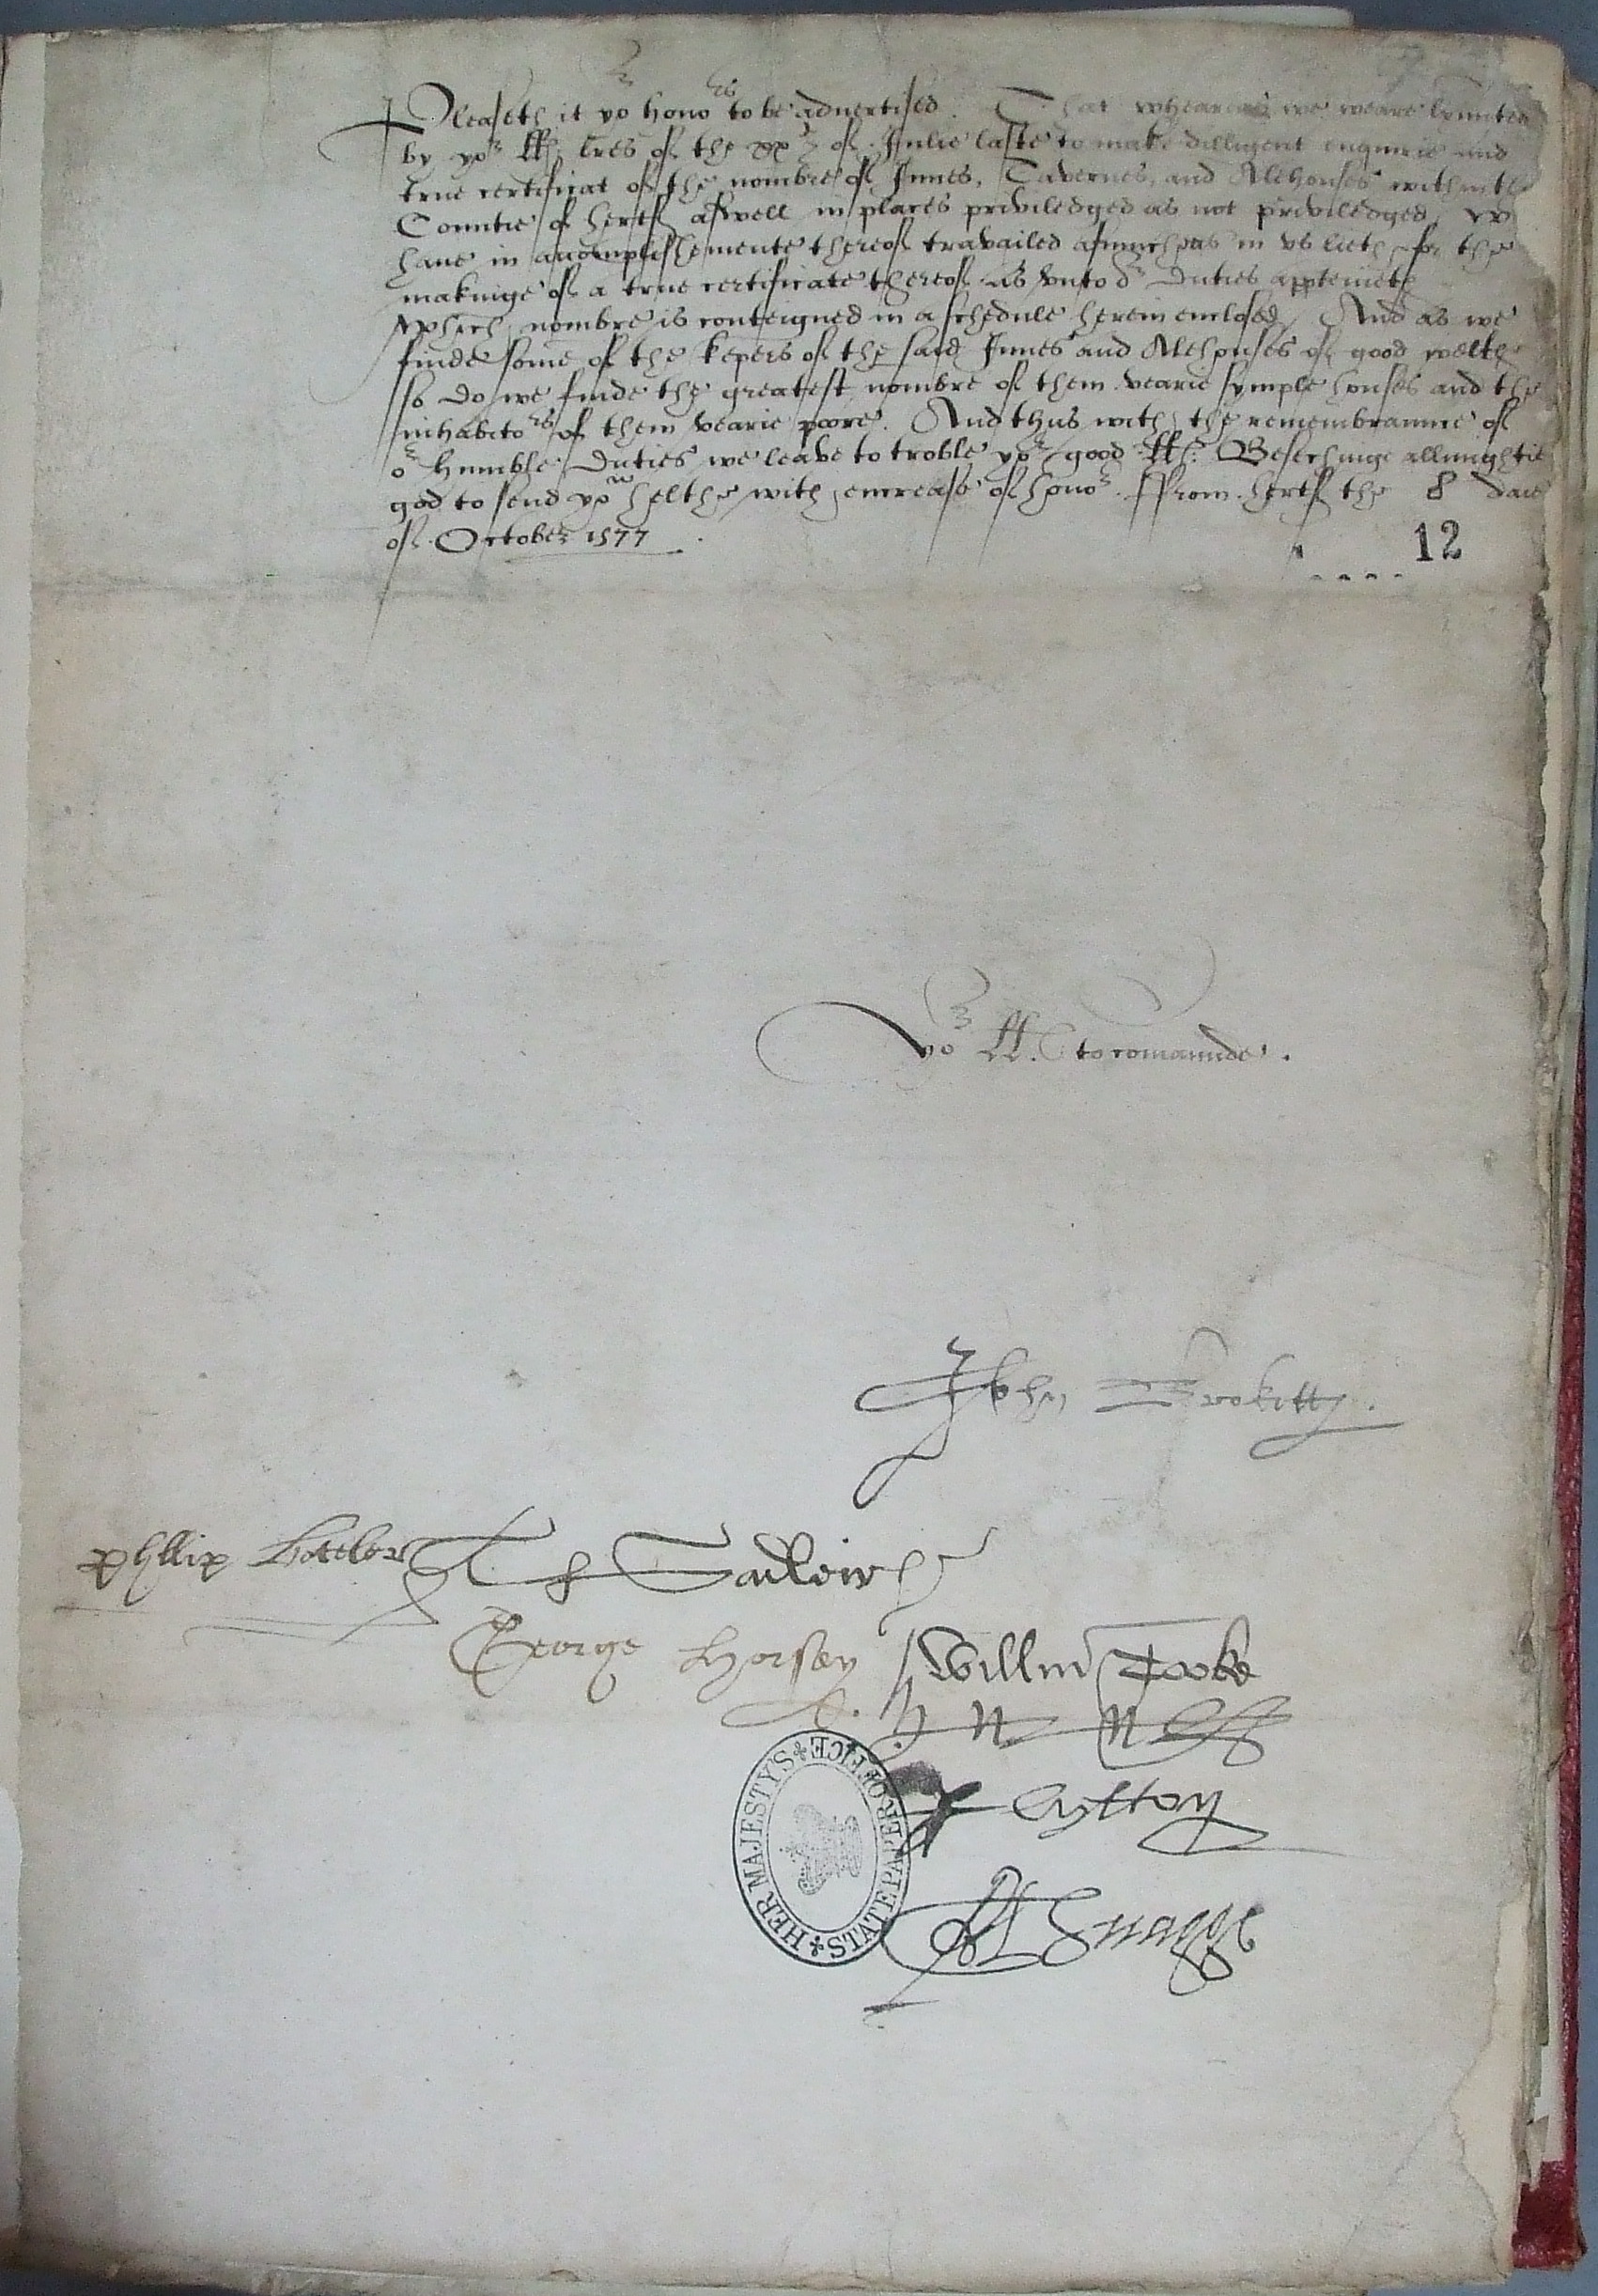 Pleaseth it yor honors to be advertised. That wheareas we weare
by yor LLs: lres of the xxth of Julie laste to make dilligent enquirie and
true certificat of the nombre of Innes, Tavernes, and Alehouses within the
Countie of Hertf aswell in places priviledged as not priviledged, we
haue in accomplishemente thereof travailed asmuch as in vs lieth for the
makinge of a true certificate thereof as vnto or duties apperteineth
Which nombre is conteigned in a schedule herein enclosed, And as we
finde some of the kepers of the said Innes and Alehouses of good welthe
so do we finde the greatest nombre of them vearie symple houses and the
inhabitors of them vearie poore. And thus with the remembraunce of
or humble duties we leave to troble yor good LLs: Besechinge allmightie
god to send you helthe with encrease of honor. ffrom Hertf the 8 daie
of October 1577
12
yor LL. to comaunde.
John Brokett
Phillip Botteler Th Sadleir
George Horsey Willm Tooke
Lytton
Snagge
HER MAJESTYS STATE PAPER OFFICE